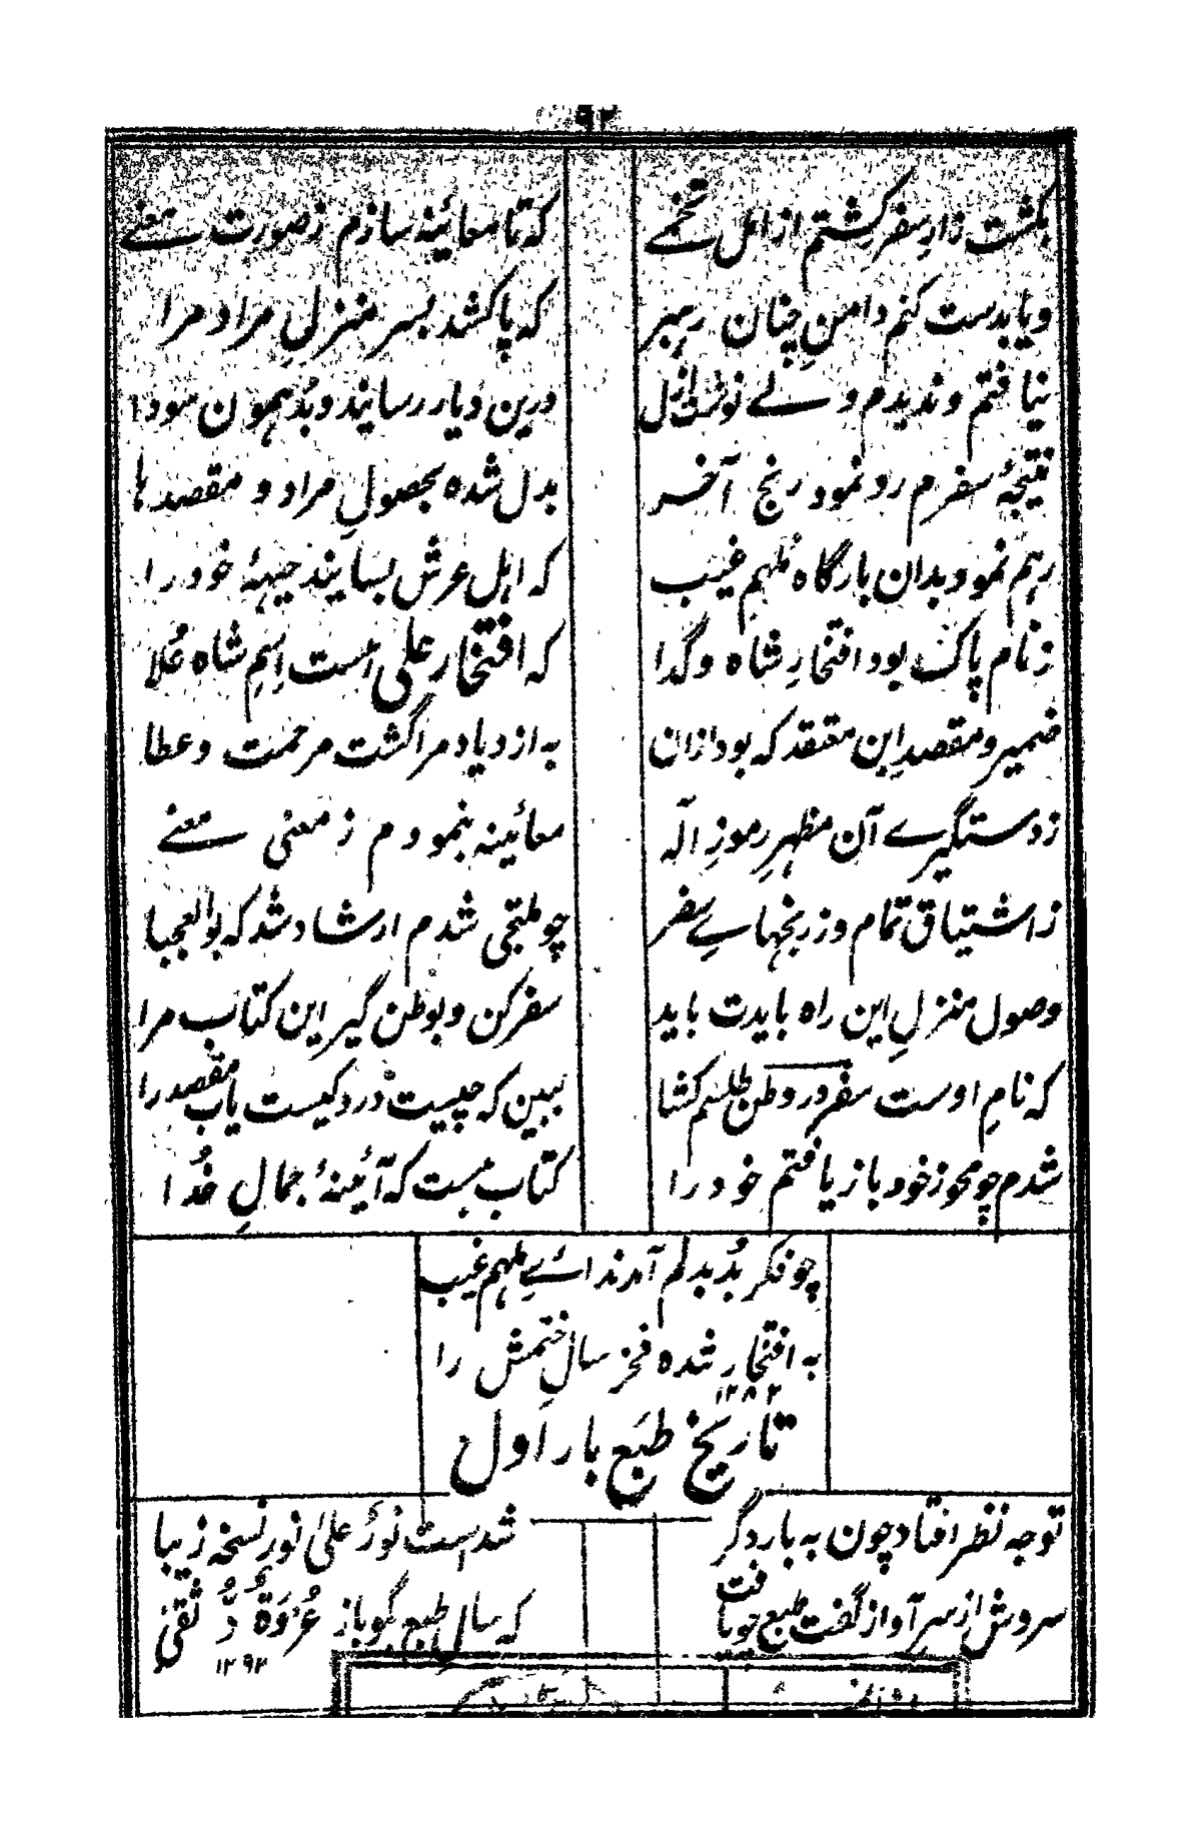 ۹۲
بکشت زارِ سفر کشتم از امل تخمے
که تا معائینه سازم ز صورت معنے
و یا بدست کنم دامنِ چنان رہبر
که پا کشد بسر منزلِ مراد مرا
نیافتم و ندیدم ولے نوشتِ ازل
درین دیار رسانید و بُد ہمون سودا
نتیجۂ سفرم رو نمود رنج آخر
بدل شده بحصولِ مراد و مقصدہا
رہم نمود بدان بارگاه ملہم غیب
که اہل عرش بسایند جبہۂ خود را
ز نام پاک بود افتخارِ شاه و گدا
که افتخار علی است اِسمِ شاه عُلا
ضمیر و مقصدِ این معتقد که بود ازان
به ازدیاد مرا گشت مرحمت و عطا
ز دستگیرے آن مظہرِ رموزِ الٓه
معائینه بنمودم ز معنی معنے
ز اشتیاق تمام و ز رنجہاے سفر
چو ملتجی شدم ارشاد شد که بوالعجبا
وصول منزلِ این راه بایدت باید
سفر کن و بوطن گیر این کتاب مرا
که نامِ اوست سفر در وطن طلسم کشا
ببین که چیست درو کیست یاب مقصد را
شدم چو محو ز خود باز یافتم خود را
کتاب نیست که آئینۂ جمالِ خُدا
چو فکر بُد بدلم آمد نداۓ ملہم غیب
به افتخار شده فخر سالِ ختمش را
۱۲۸۲
تاریخ طبع بار اول
توجه نظر افتاد چون به بار دگر
شد است نورٌ علیٰ نور نسخه زیبا
سروش از سرِ آواز گفت طبع چو یافت
که سال طبع بگو باز عُرْوَةٌ دُ ثقیٰ
۱۲۹۲